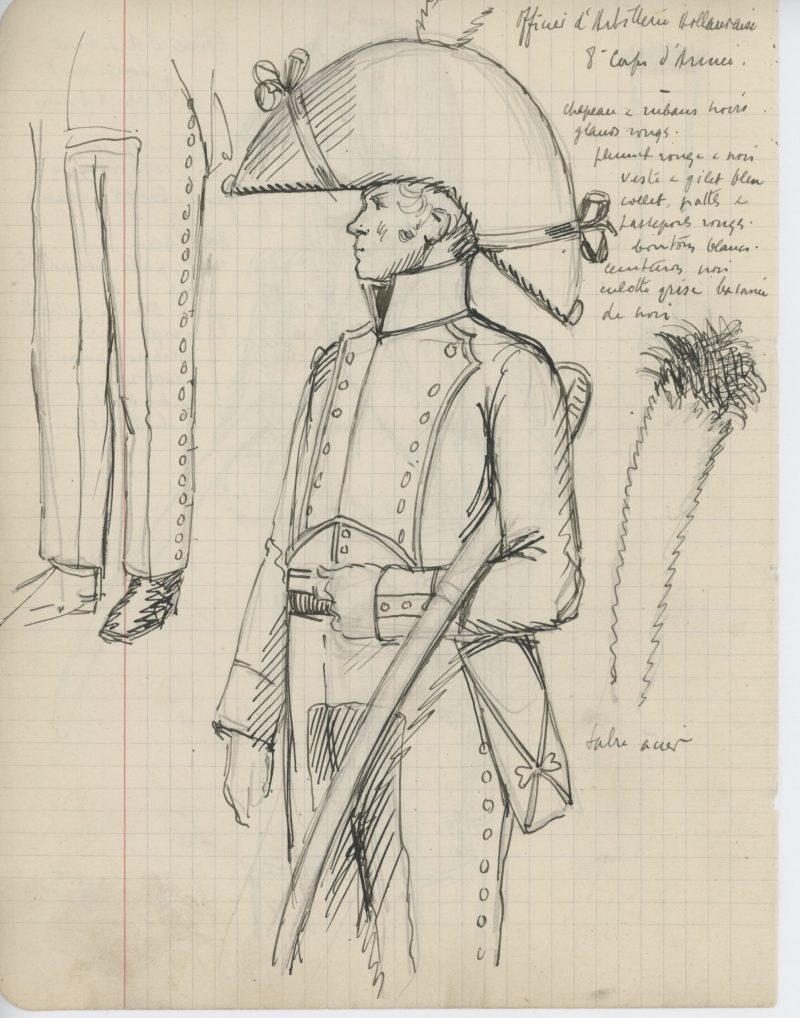 Officier d'Artillerie Hollandaise
8e Corps d'Armée.
chapeau & rubans noirs.
glands rouges.
plumet rouge & noir
veste & gilet bleu
collet, pattes &
passepoils rouges.
boutons blancs.
ceinturon noir
culotte grise basanée
de noir
Sabre acier